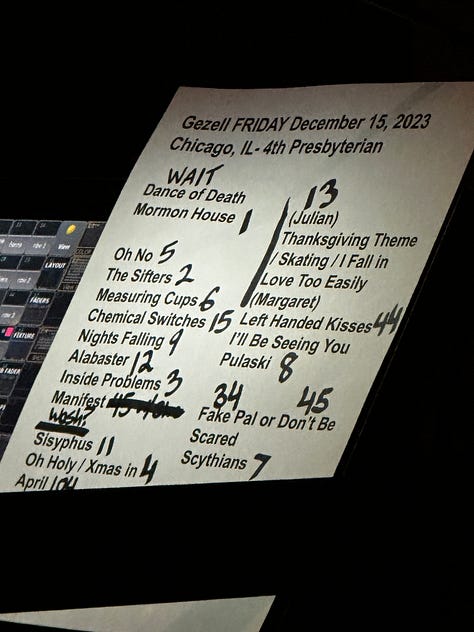 Gezell FRIDAY December 15, 2023
Chicago, IL- 4th Presbyterian
WAIT
Dance of Death
Mormon House 1
Oh No 5
The Sifters 2
Measuring Cups 6
Chemical Switches 15
Nights Falling 9
Alabaster 12
Inside Problems 3
Manifest
Sisyphus 11
Oh Holy / Xmas in 4
April 104
13
(Julian)
Thanksgiving Theme
/ Skating / I Fall in
Love Too Easily
(Margaret)
Left Handed Kisses 44
I'll Be Seeing You
Pulaski 8
34 45
Fake Pal or Don't Be
Scared
Scythians 7
View
LAYOUT
FADERS
FIXTURE